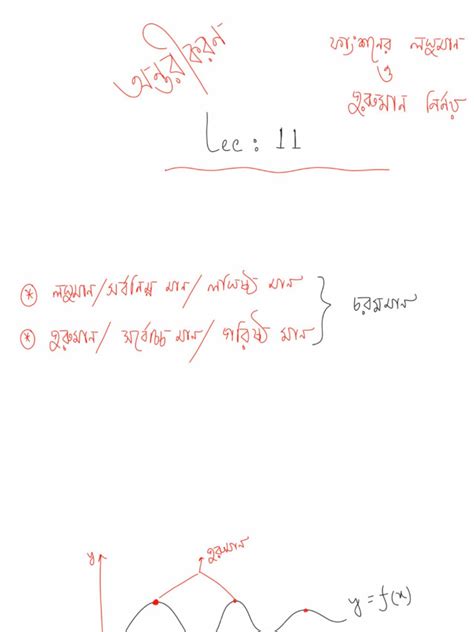 অন্তরীকরণ
ফাংশনের লঘুমান
ও
গুরুমান নির্ণয়
Lec: 11
* লঘুমান/সর্বনিম্ন মান/লঘিষ্ঠ মান
চরমমান
* গুরুমান/সর্বোচ্চ মান/গরিষ্ঠ মান
y
গুরুমান
y = f(x)